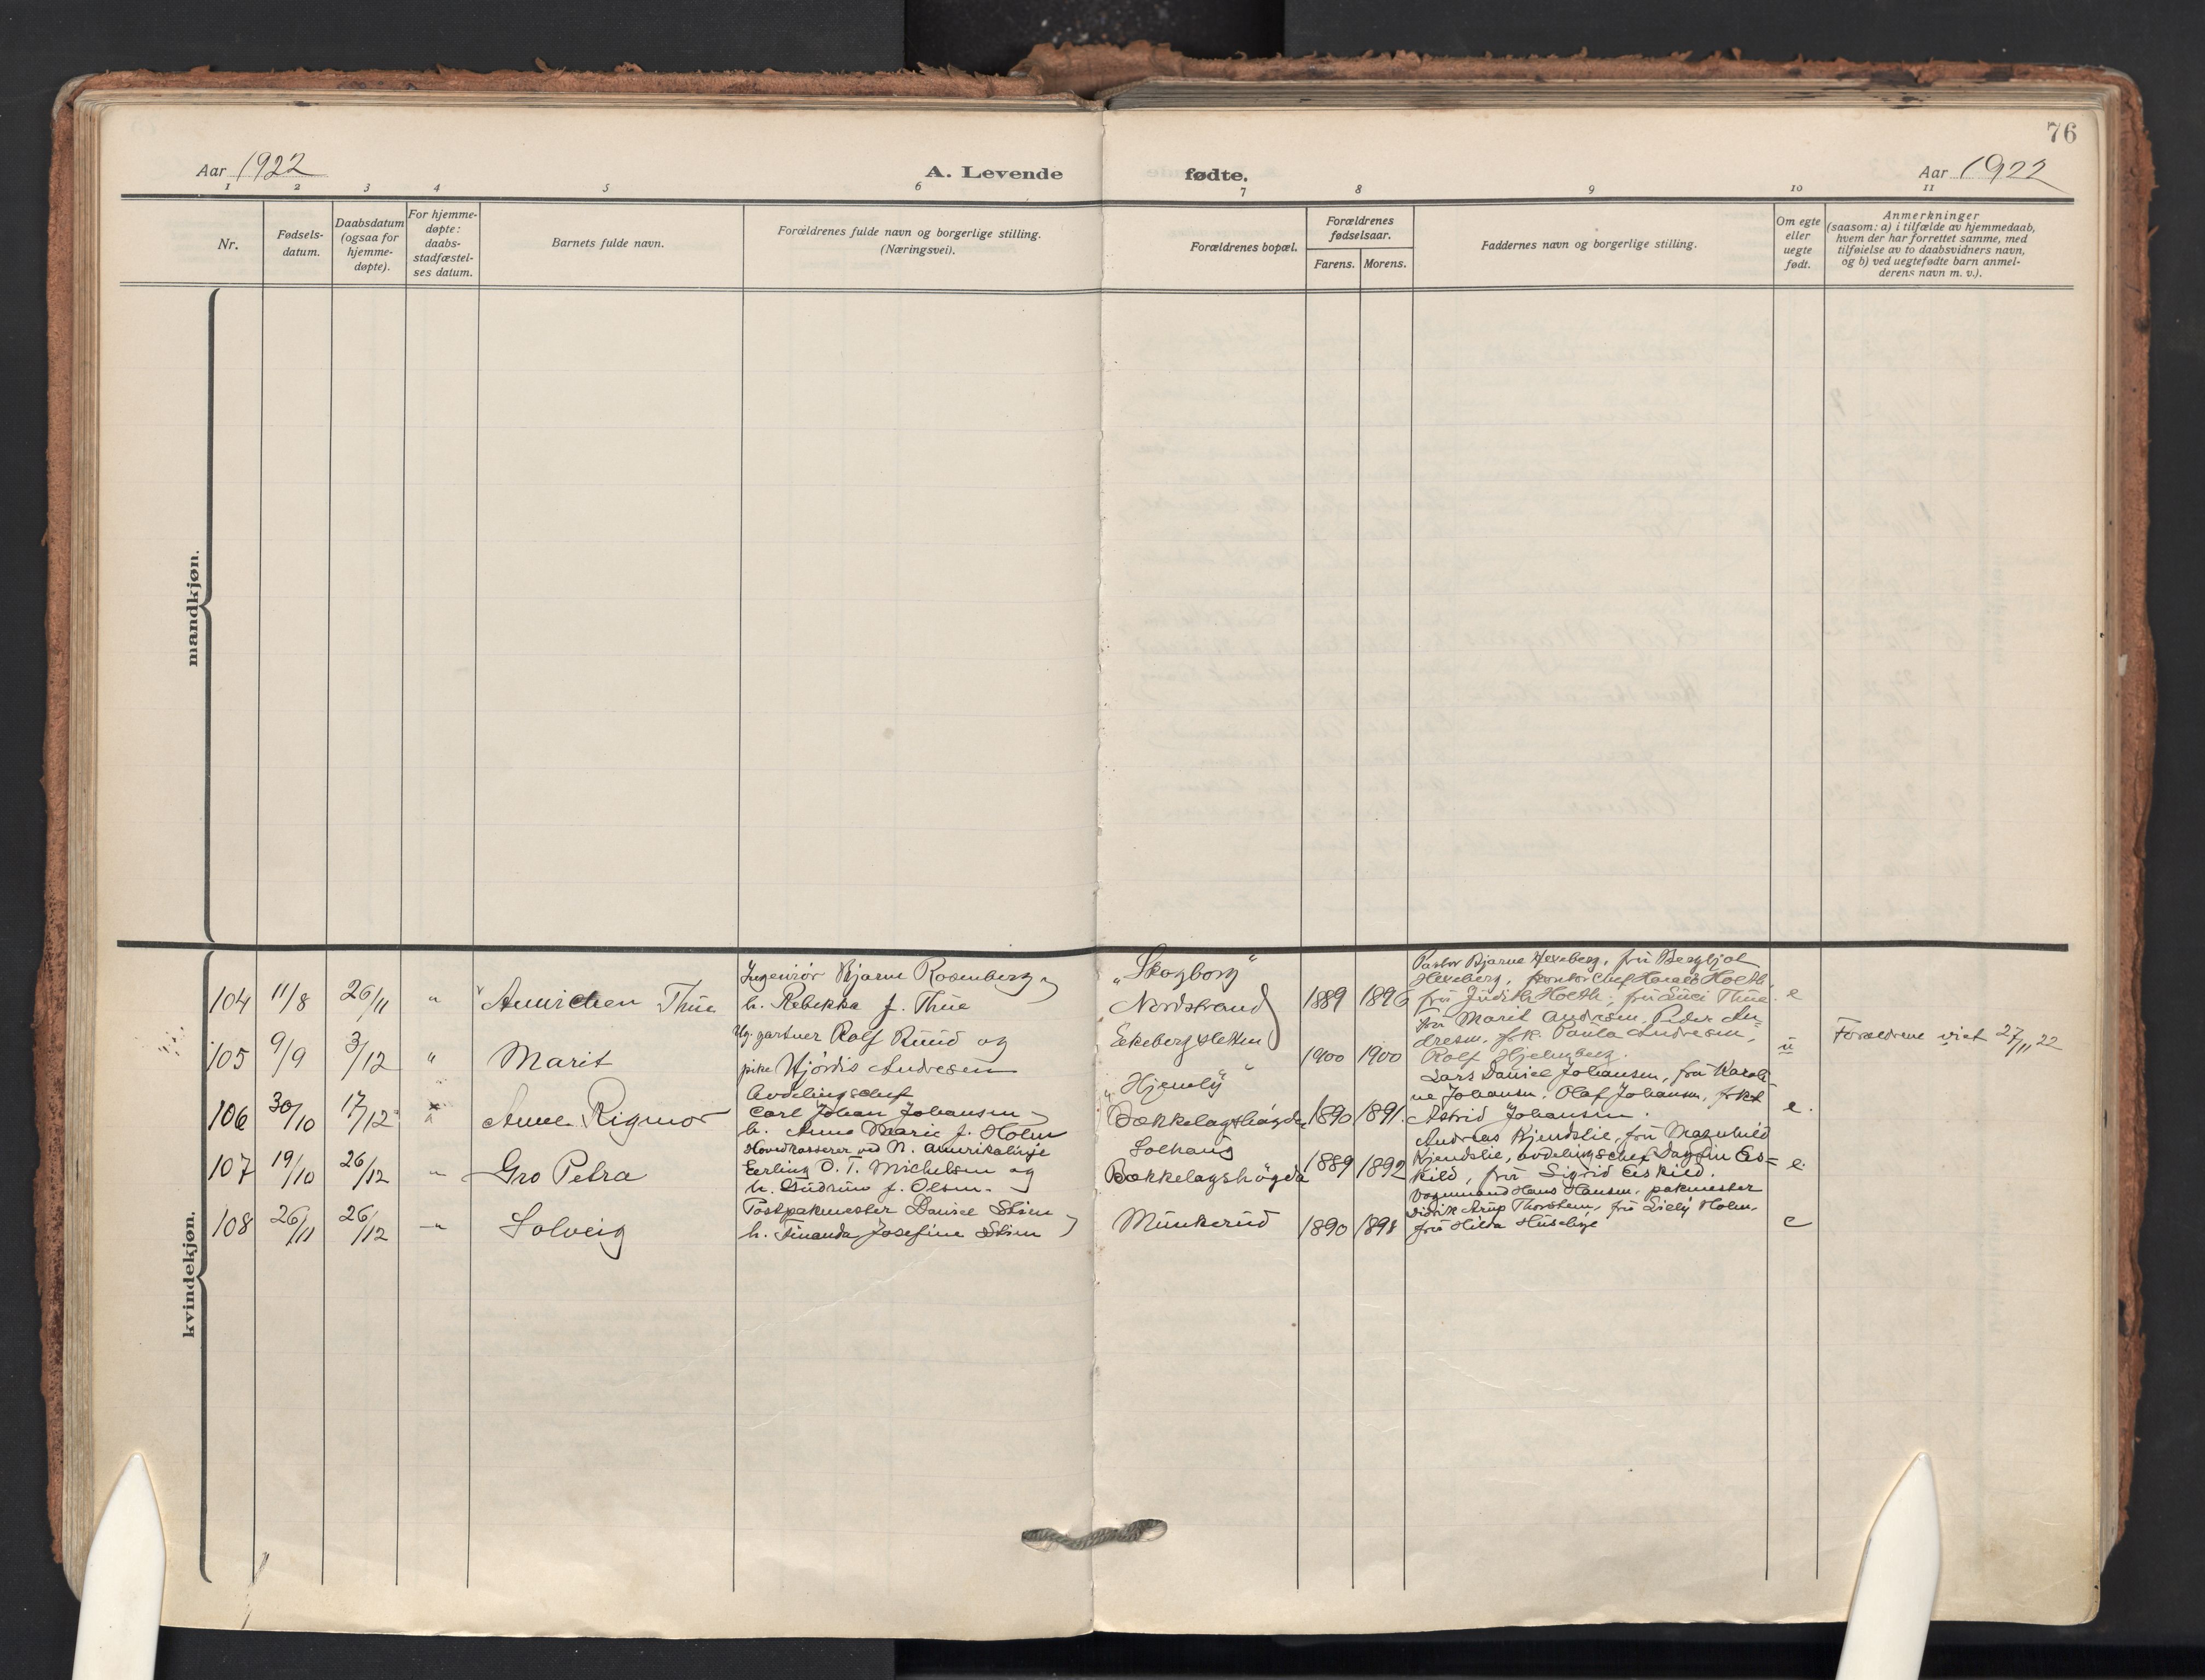 76
Aar 1922
A. Levende fødte.
Aar 1922
1 2 3 4 5 6 7 8 9 10 11
Nr.
Fødsels-
datum.
Daabsdatum
(ogsaa for
hjemme-
døpte).
For hjemme-
døpte:
daabs-
stadfæstel-
ses datum.
Barnets fulde navn.
Forældrenes fulde navn og borgerlige stilling.
(Næringsvei).
Forældrenes bopæl.
Forældrenes
fødselsaar.
Farens. Morens.
Faddernes navn og borgerlige stilling.
Om egte
eller
uegte
født.
Anmerkninger
(saasom: a) i tilfælde av hjemmedaab,
hvem der har forrettet samme, med
tilføielse av to daabsvidners navn,
og b) ved uegtefødte barn anmel-
derens navn m. v.).
mandkjøn.
kvindekjøn.
104 11/8 26/11 " Annichen Thue
Ingeniør Bjarne Rosenberg
h. Rebekka f. Thue
"Skogborg"
Nordstrand
1889 1896
Pastor Bjarne Hexeberg, fru Bergljot
Hexeberg, kontorchef Harald Holth,
fru Judith Holth, fru Thue.
e
105 9/9 3/12 " Marit
Ug. gartner Rolf Ruud og
pike Hjørdis Andresen
Ekebergsletten
1900 1900
fru Marit Andresen, Peder An=
dresen, frk. Paula Andresen,
Rolf Hjelmberg.
u
Forældrene viet 27/11 22
106 30/10 17/12 " Anne Rigmor
Avdelingschef
Carl Johan Johansen
h. Anna Marie f. Holm
"Hjemly"
Bækkelagshøgda
1890 1891.
Lars Daniel Johansen, fru Karoli
ne Johansen, Olaf Johansen, frk.
Astrid Johansen.
e.
107 19/10 26/12 " Gro Petra
Hovedkasserer ved N. Amerikalinje
Erling O. T. Michelsen og
h. Gudrun f. Olsen.
Solhaug
Bækkelagshøgda
1889 1892
Andreas Kjendslie, fru Magnhild
Kjendslie, avdelingschef Dagfin Es=
kild, fru Sigrid Eskild.
e.
108 26/11 26/12 " Solveig
Postpakmester Daniel Stien
h. Finanda Josefine Stien
Munkerud
1890 1898
Vognmand Hans Hansen, pakmester
Didrik Arup Thorstein, fru Holm,
fru Hilda
e